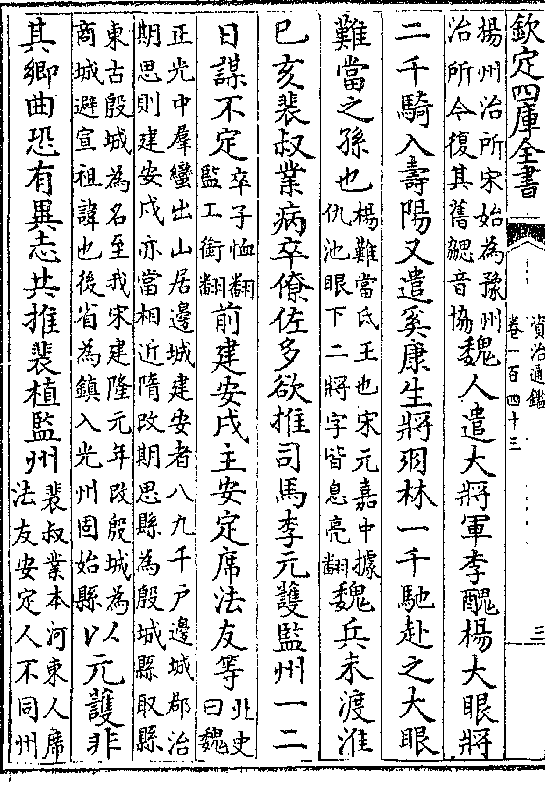 欽定四庫全書
資治通鑑
卷一百四十三
三
揚州治所宋始為豫州
治所今復其舊勰音協
魏人遣大將軍李醜楊大眼將
二千騎入壽陽又遣奚康生將羽林一千馳赴之大眼
難當之孫也
楊難當氐王也宋元嘉中據
仇池眼下二將字皆息亮翻
魏兵未渡淮
巳亥裴叔業病卒僚佐多欲推司馬李元護監州一二
日謀不定
卒子恤翻
監工銜翻
前建安戍主安定席法友等
北史
曰魏
正光中羣蠻出山居邊城建安者八九千戶邊城郡治
期思則建安戍亦當相近隋改期思縣為殷城縣取縣
東古殷城為名至我宋建隆元年改殷城為
商城避宣祖諱也後省為鎮入光州固始縣
以元護非
其鄉曲恐有異志共推裴植監州
裴叔業本河東人席
法友安定人不同州